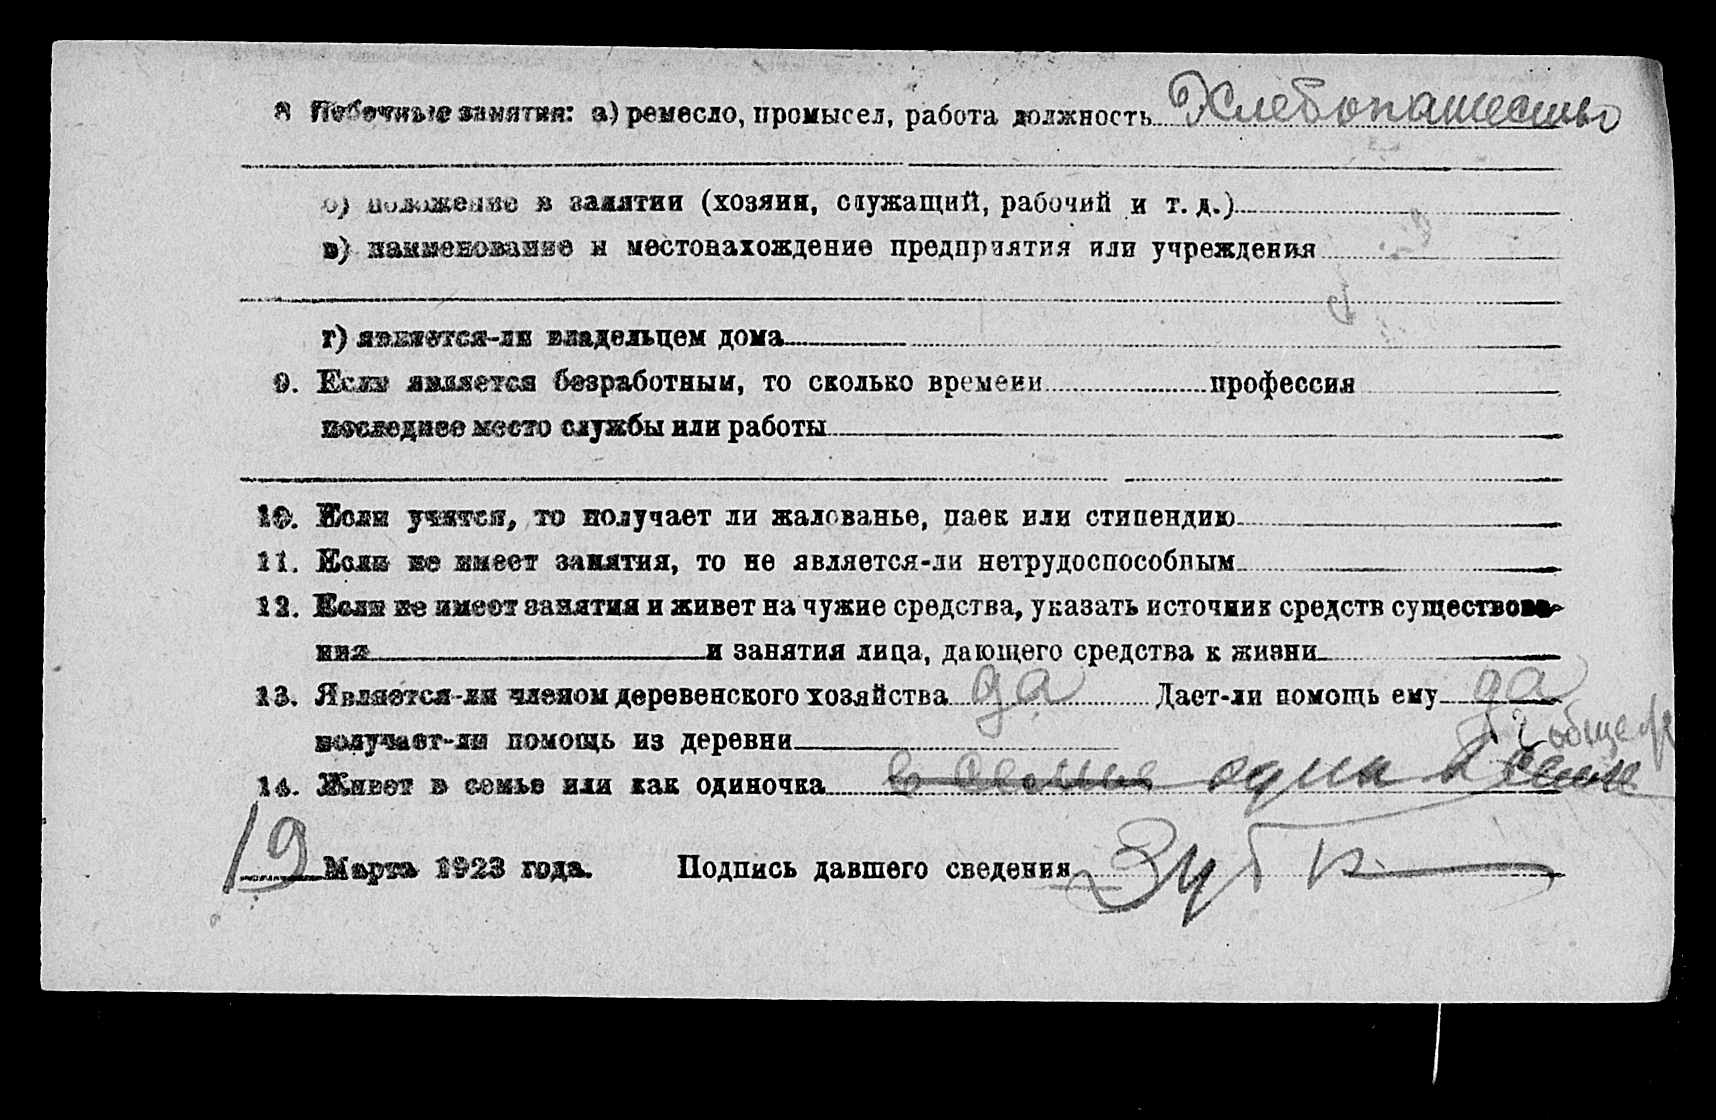 8 Побочные занятия: а) ремесло, промысел, работа должность Хлебопашество
б) положение в занятии (хозяин, служащий, рабочий и т. д.)
в) наименование и местонахождение предприятия или учреждения
г) является-ли владельцем дома
9. Если является безработным, то сколько времени профессия
последнее место службы или работы
10. Если учится, то получает ли жалованье, паек или стипендию
11. Если не имеет занятия, то не является-ли нетрудоспособным
12. Если не имеет занятия и живет на чужие средства, указать источник средств существова-
ния и занятия лица, дающего средства к жизни
13. Является-ли членом деревенского хозяйства да Дает-ли помощь ему да
получает-ли помощь из деревни
14. Живет в семье или как одиночка в семье
19 Марта 1923 года. Подпись давшего сведения